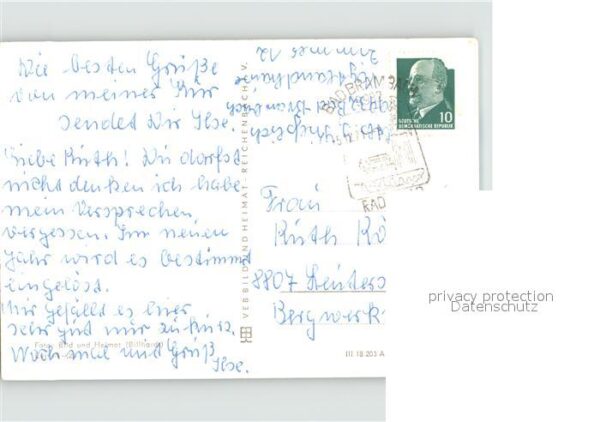 Die besten Grüße
von meiner Kur
sendet Dir Ilse.
Liebe Ruth! Du darfst
nicht denken ich habe
mein Versprechen
vergessen. Im neuen
Jahr wird es bestimmt
eingelöst.
Mir gefällt es hier
sehr gut nur zu kurz.
Nochmal und Gruß
Ilse.
Foto: Bild und Heimat (Billhardt)
VEB BILD UND HEIMAT · REICHENBACH I. V.
Zimmer 12
Vogtlandhaus
BAD BRAMBACH
10
DEUTSCHE
DEMOKRATISCHE REPUBLIK
RAD
Frau
Ruth Kö
8807 Leuters
Bergwerk
III 18 203 A
privacy protection
Datenschutz